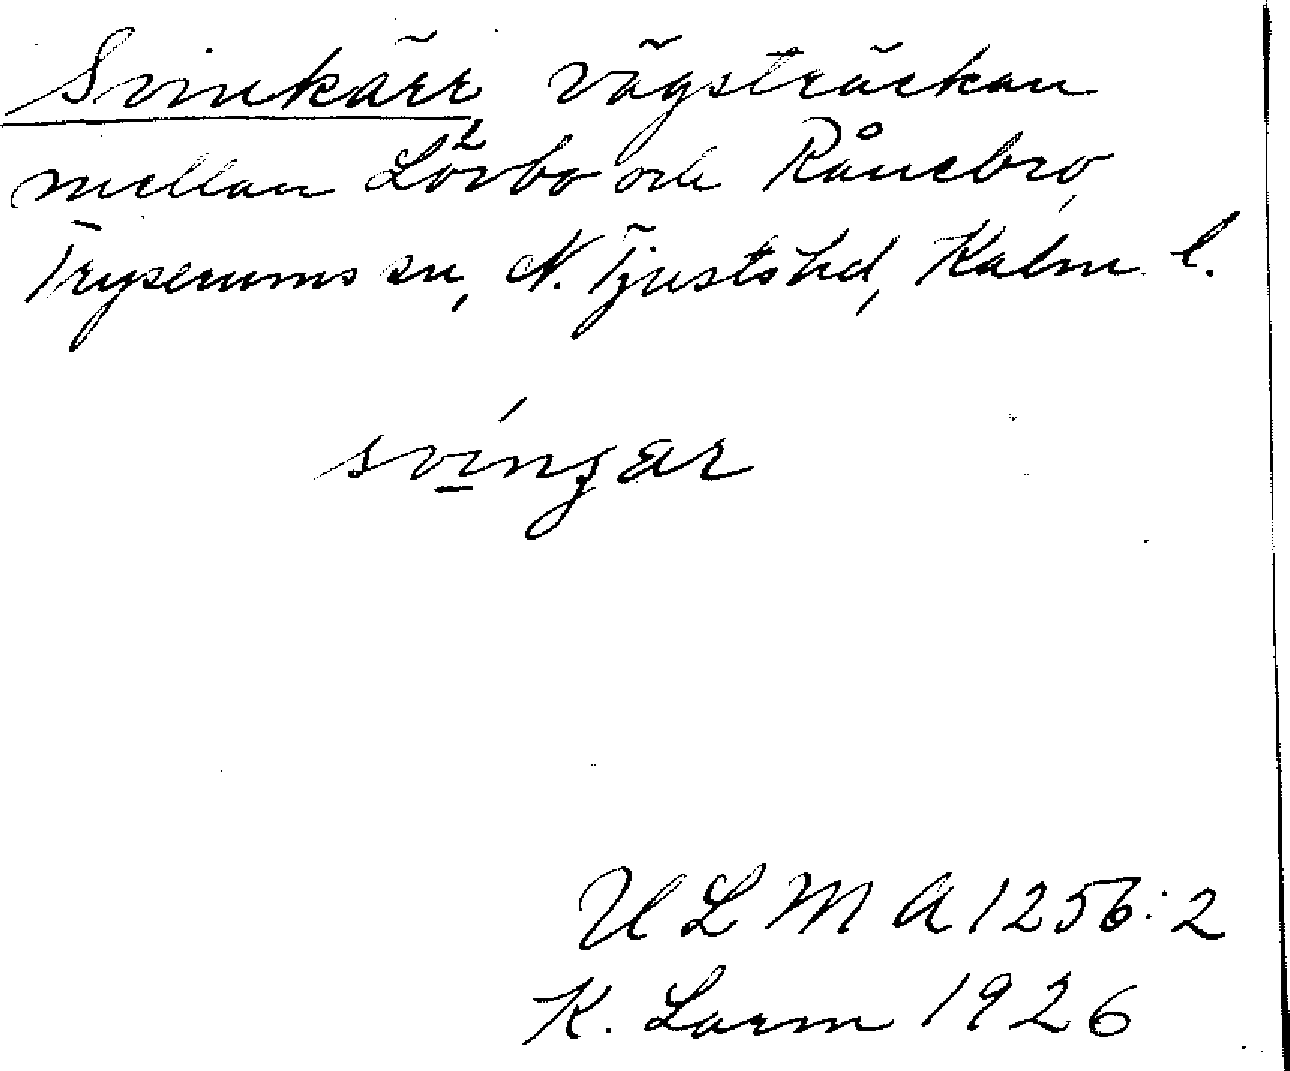 Svinkärr vägsträckan
mellan Lövbo och Rånebro,
Tryserums sn, N. Tjusts hd, Kalm. l.
svinʒar
U L M A 1256:2
K. Larm 1926